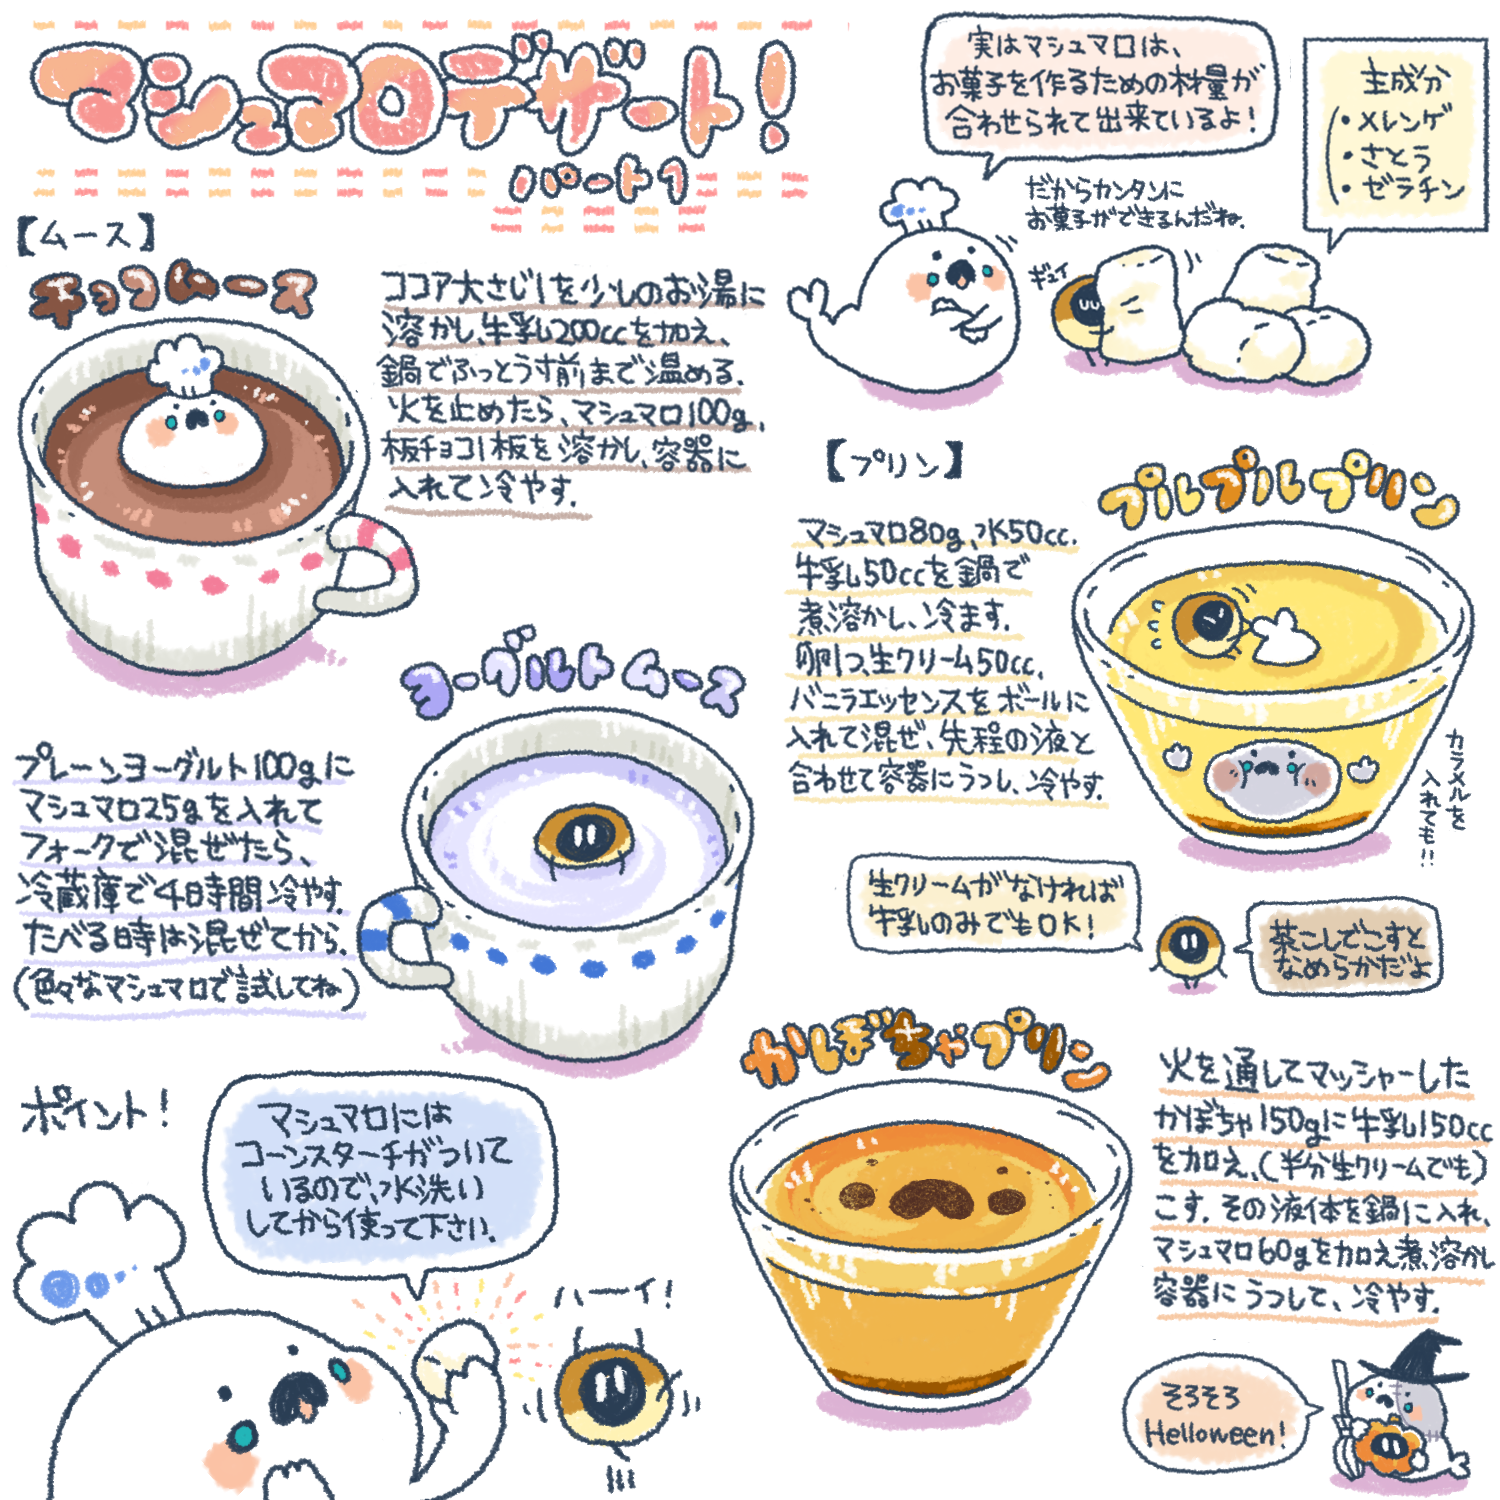 マシュマロデザート!
パート1
実はマシュマロは、
お菓子を作るための材量が
合わせられて出来ているよ!
主成分
・メレンゲ
・さとう
・ゼラチン
だからカンタンに
お菓子ができるんだね.
ギュイ
【ムース】
チョコムース
ココア大さじ1を少しのお湯に
溶かし、牛乳200ccを加え、
鍋でふっとうす前まで温める.
火を止めたら、マシュマロ100g、
板チョコ1板を溶かし、容器に
入れて冷やす.
ヨーグルトムース
プレーンヨーグルト100gに
マシュマロ25gを入れて
フォークで混ぜたら、
冷蔵庫で4日時間冷やす.
たべる時は混ぜてから.
(色々なマシュマロで試してね)
ポイント!
マシュマロには
コーンスターチがついて
いるので、水洗い
してから使って下さい.
ハーイ!
【プリン】
プルプルプリン
マシュマロ80g、水50cc.
牛乳50ccを鍋で
煮溶かし、冷ます.
卵1つ、生クリーム50cc.
バニラエッセンスをボールに
入れて混ぜ、先程の液と
合わせて容器にうつし、冷やす.
カラメルを
入れても!!
生クリームがなければ
牛乳のみでもOK!
茶こしでこすと
なめらかだよ
かぼちゃプリン
火を通してマッシャーした
かぼちゃ150gに牛乳150cc
を加え、(半分生クリームでも)
こす.その液体を鍋に入れ、
マシュマロ60gを加え煮溶かし
容器にうつして、冷やす.
そろそろ
Helloween!